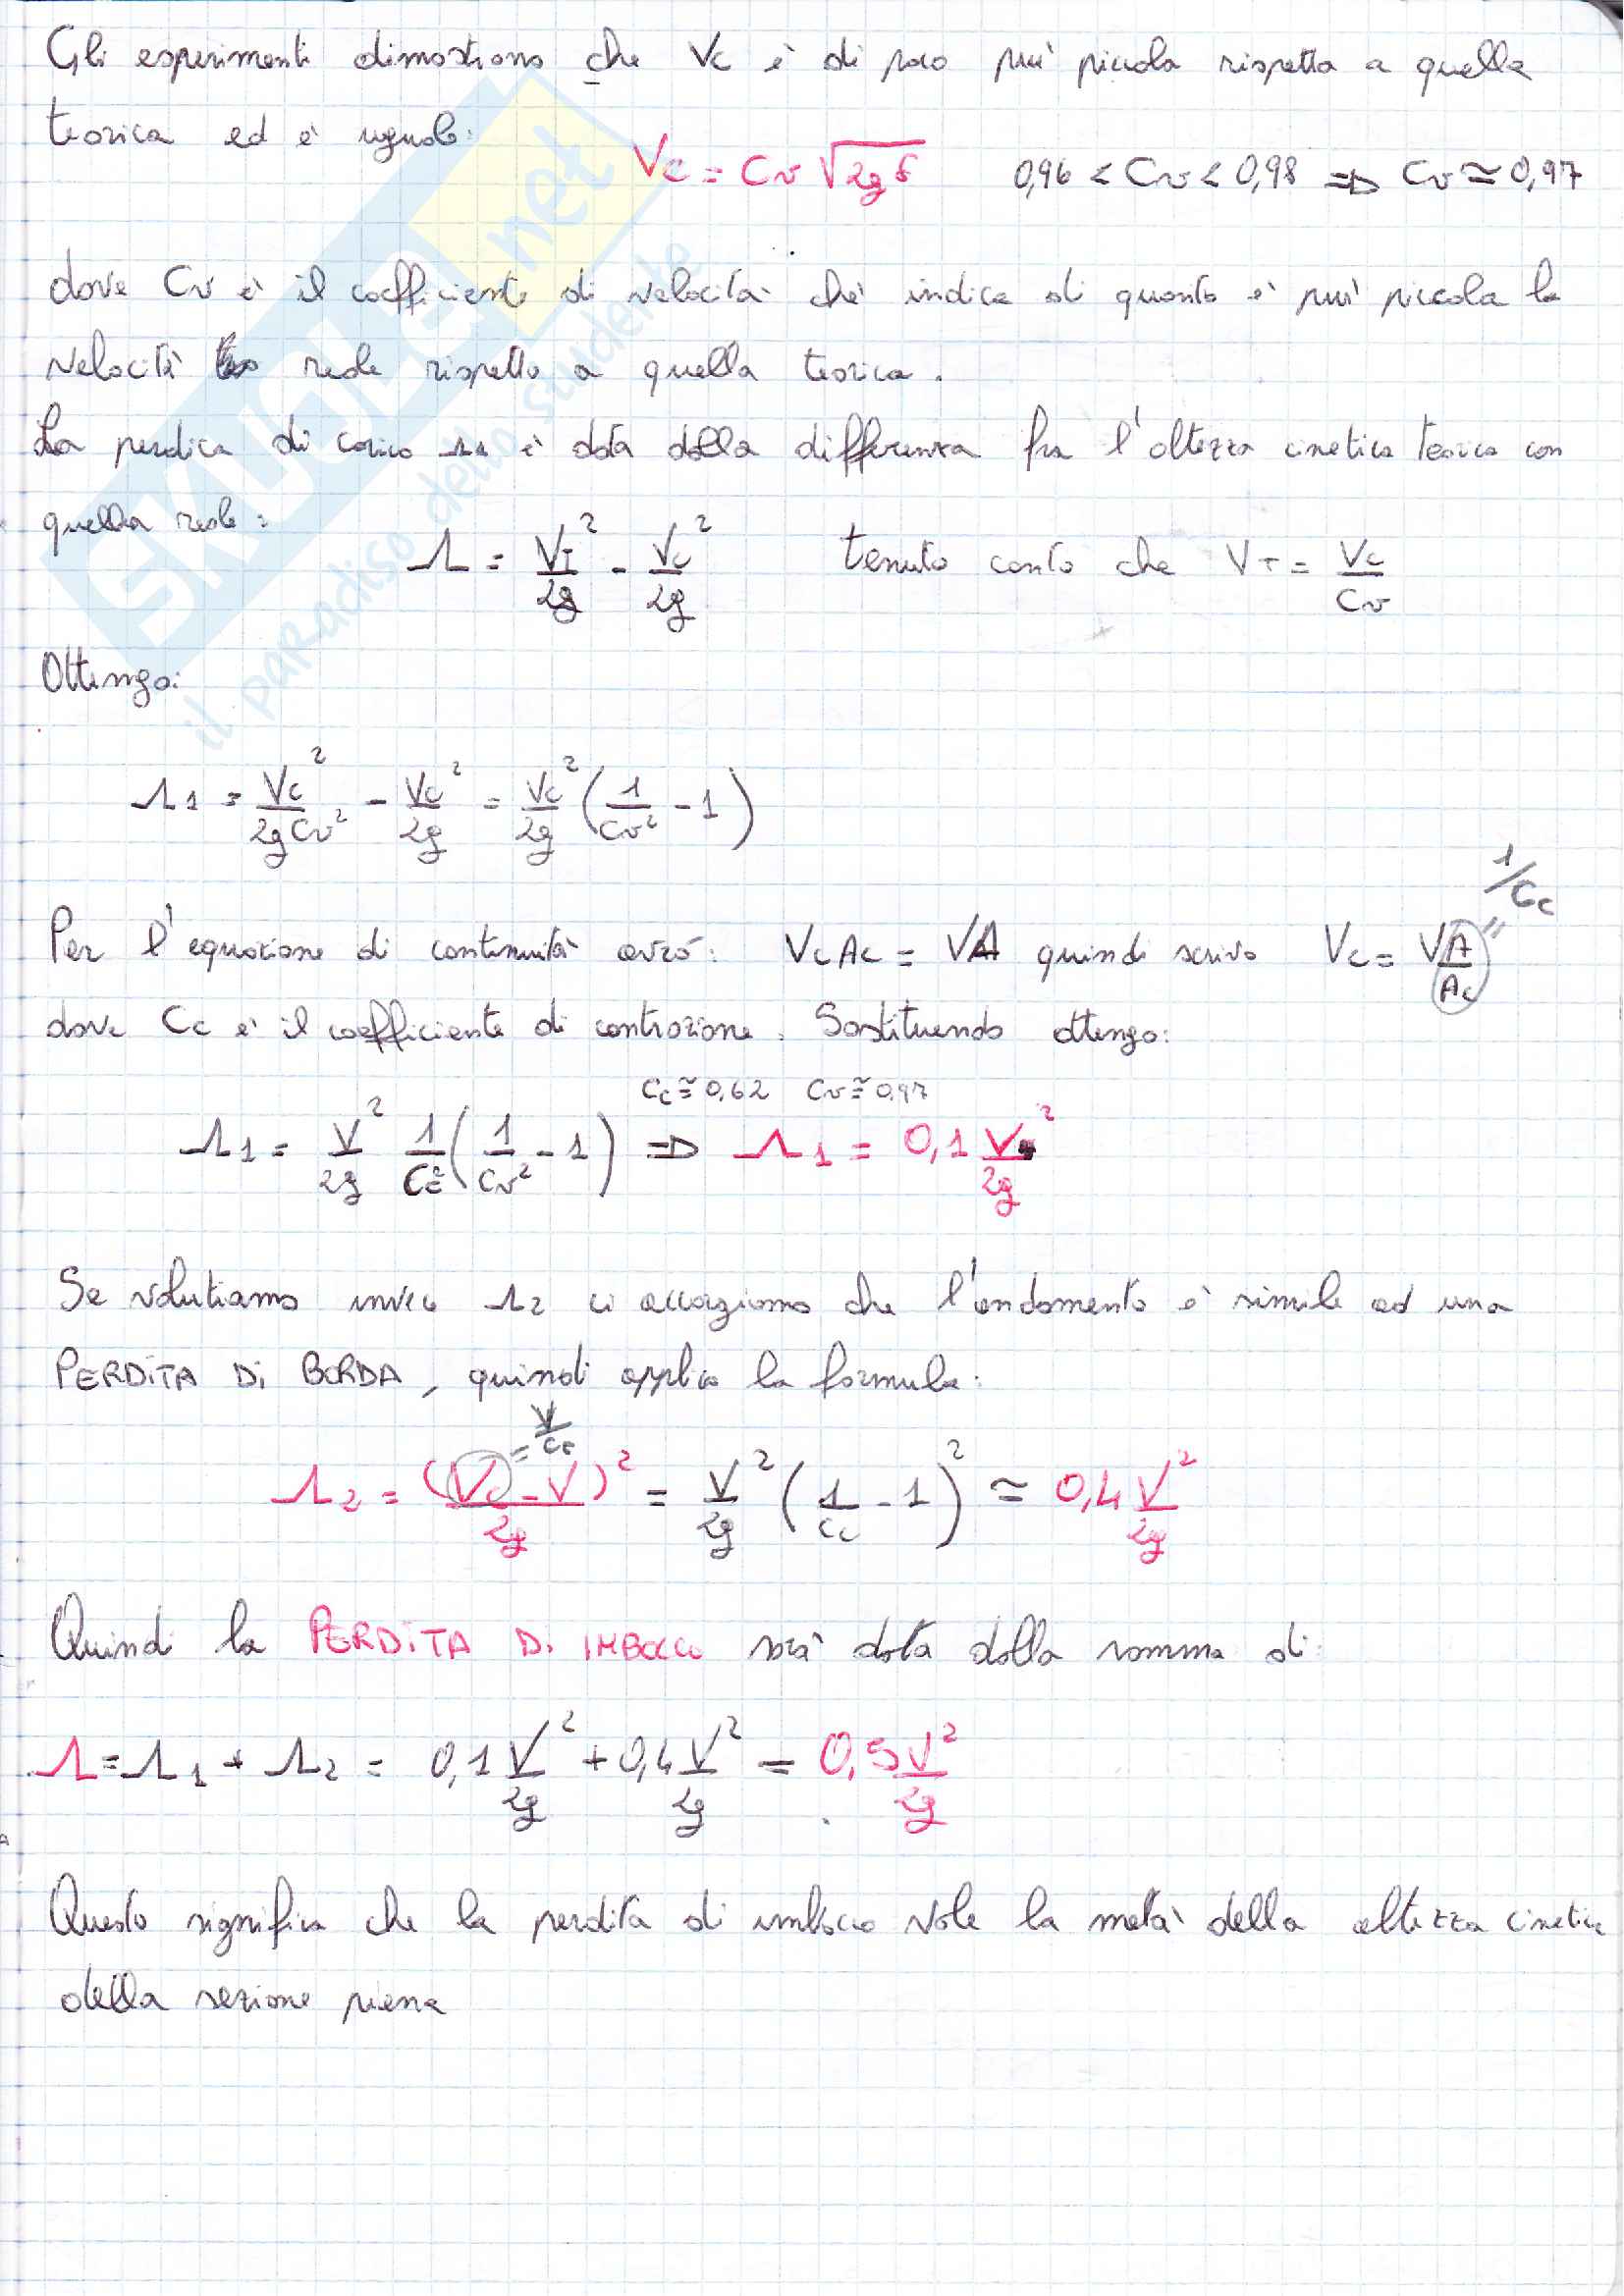 Gli esperimenti dimostrano che Vc è di poco più piccola rispetto a quella
teorica ed è uguale:
Vc = Cv √2gδ 0,96 < Cv < 0,98 => Cv ≃ 0,97
dove Cv è il coefficiente di velocità che indica di quanto è più piccola la
velocità reale rispetto a quella teorica.
La perdica di carico Λ1 è data dalla differenza fra l'altezza cinetica teorica con
quella reale:
Λ = VT²/2g - Vc²/2g tenuto conto che VT = Vc/Cv
Ottengo:
Λ1 = Vc²/2gCv² - Vc²/2g = Vc²/2g (1/Cv² - 1)
Per l'equazione di continuità avrò: VcAc = VA quindi scrivo Vc = V A/Ac = 1/Cc
dove Cc è il coefficiente di contrazione. Sostituendo ottengo:
Cc ≃ 0,62 Cv ≃ 0,97
Λ1 = V²/2g 1/Cc² (1/Cv² - 1) => Λ1 = 0,1 V²/2g
Se valutiamo invece Λ2 ci accorgiamo che l'andamento è simile ad una
PERDITA DI BORDA, quindi applico la formula:
= V/Cc
Λ2 = (Vc - V)²/2g = V²/2g (1/Cc - 1)² ≃ 0,4 V²/2g
Quindi la PERDITA DI IMBOCCO sarà data dalla somma di:
Λ = Λ1 + Λ2 = 0,1 V²/2g + 0,4 V²/2g = 0,5 V²/2g
Questo significa che la perdita di imbocco vale la metà della altezza cinetica
della sezione piena
SKUOLA.net
il paradiso dello studente